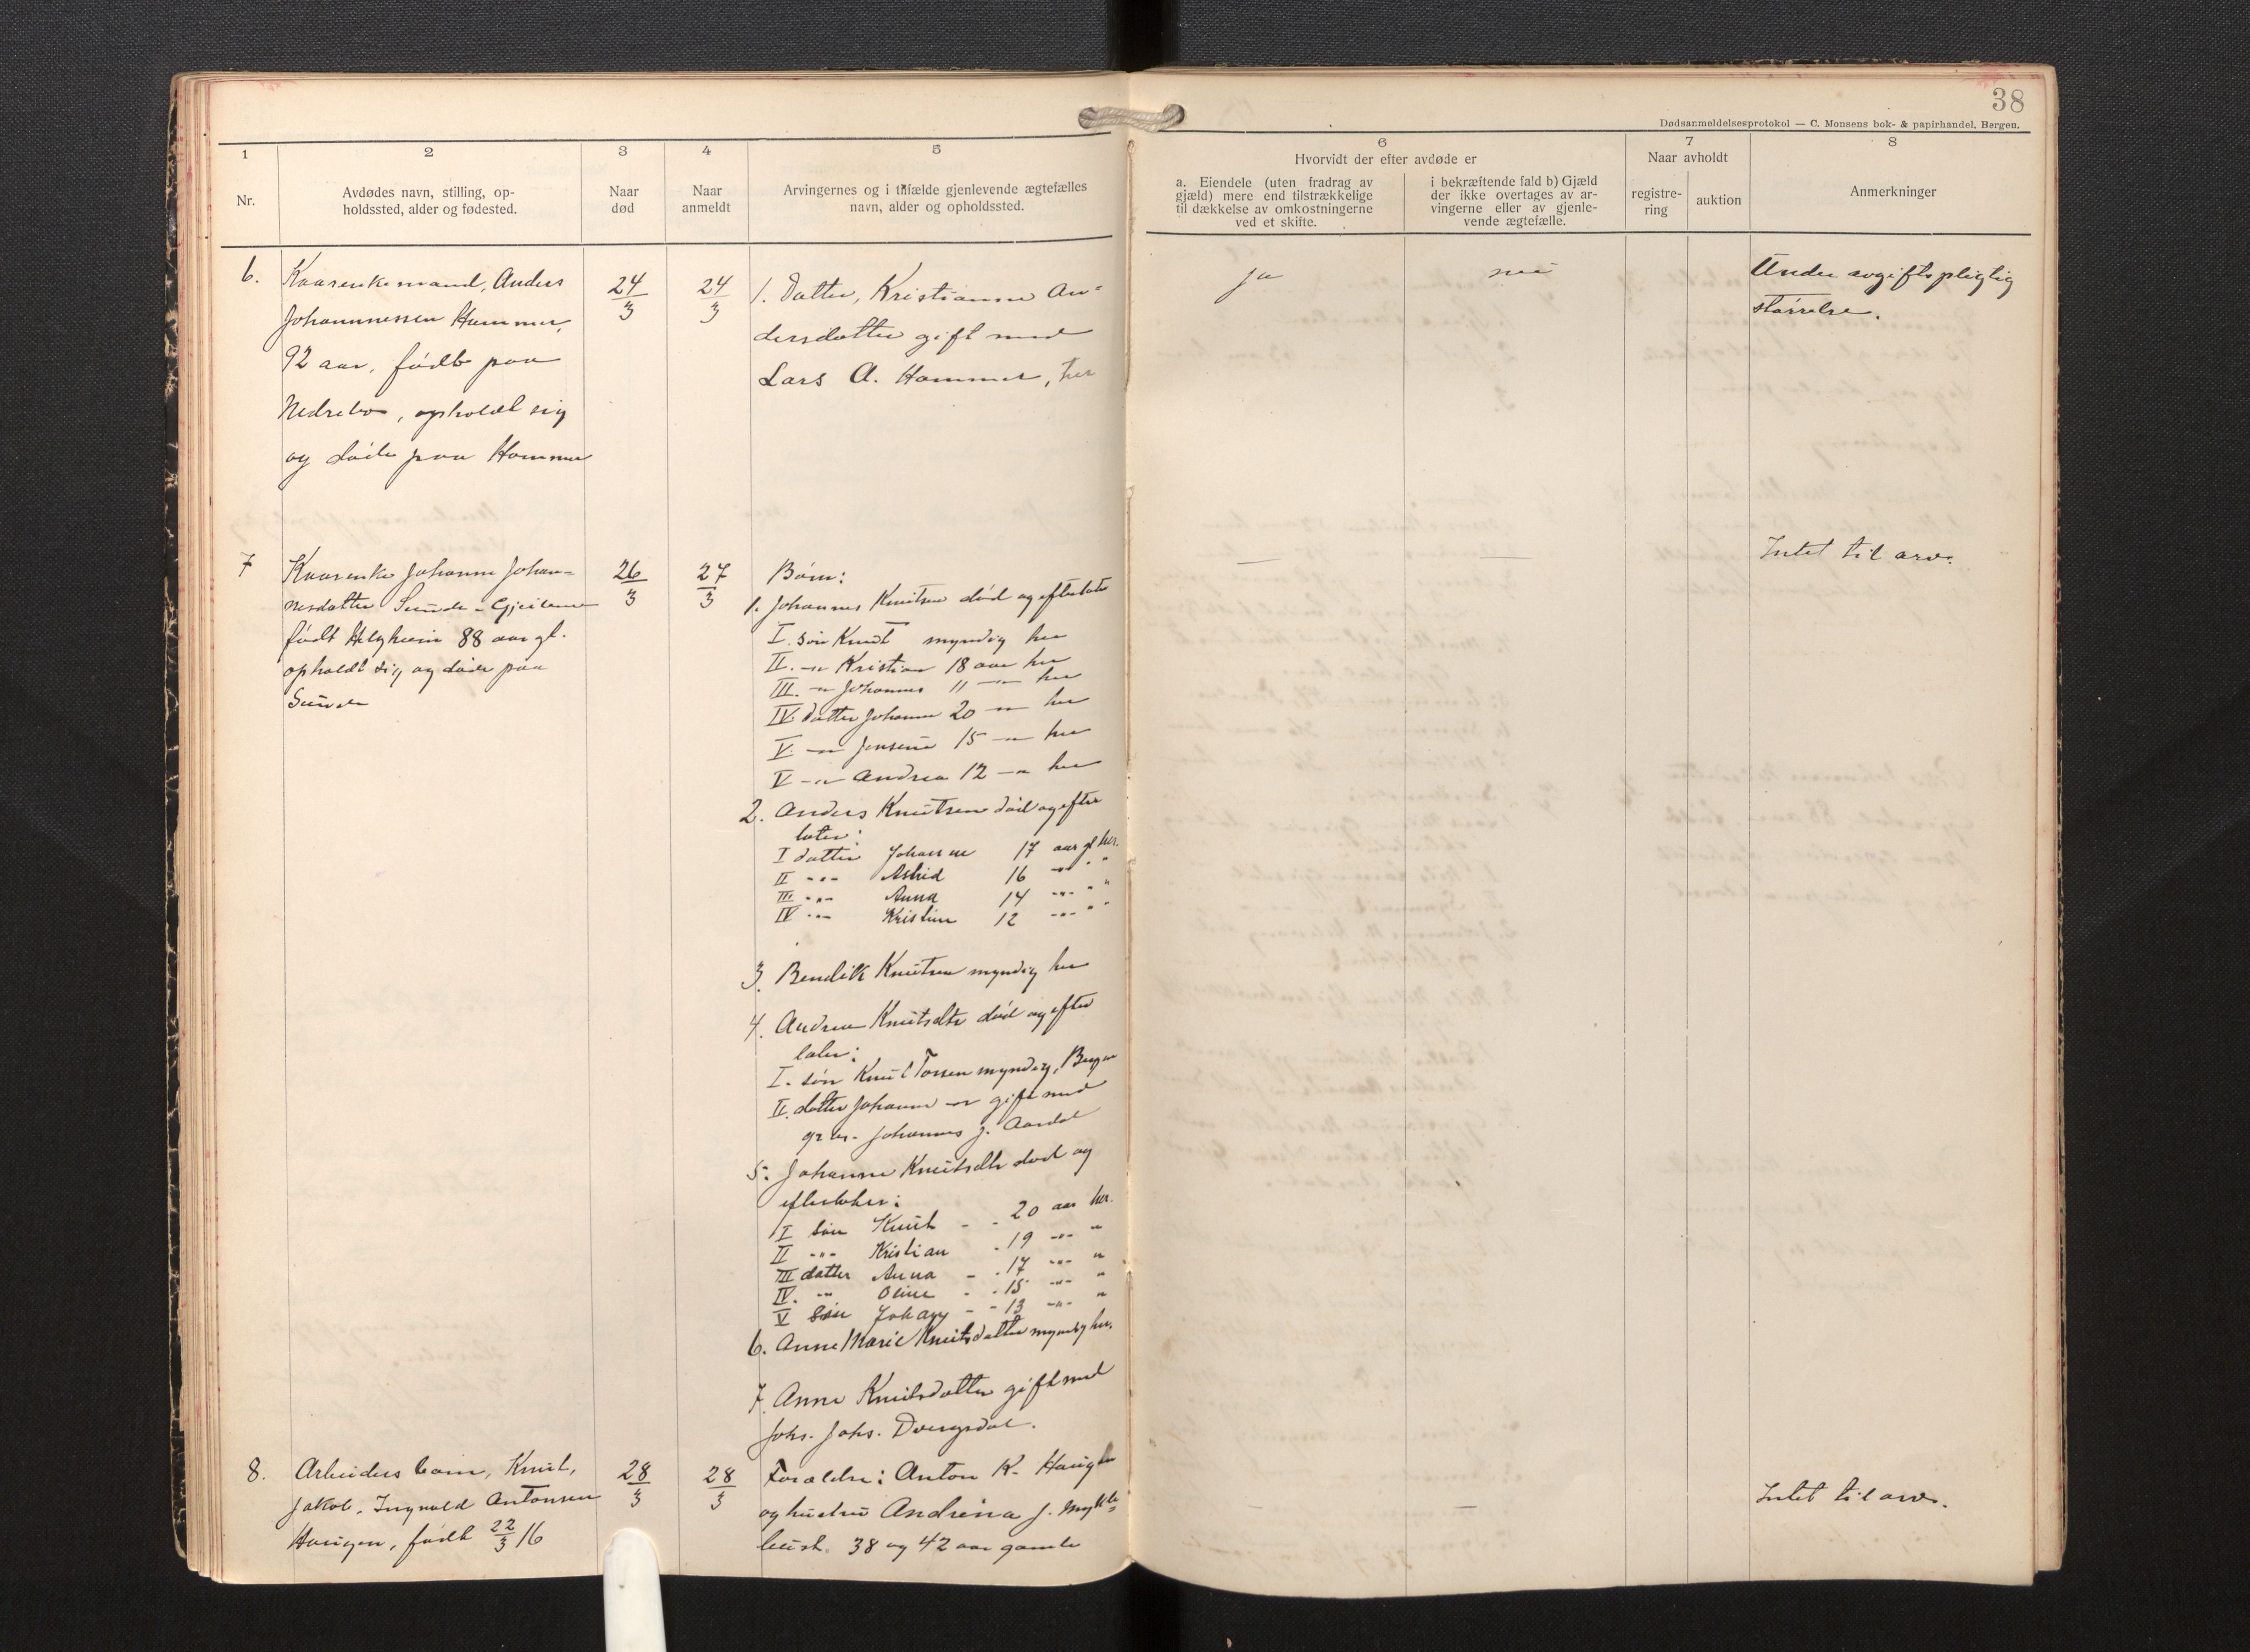 38
Dødsanmeldelsesprotokol — C. Monsens bok- & papirhandel, Bergen.
1
2
3
4
5
6
7
8
Nr.
Avdødes navn, stilling, op-
holdssted, alder og fødested.
Naar
død
Naar
anmeldt
Arvingernes og i tilfælde gjenlevende ægtefælles
navn, alder og opholdssted.
Hvorvidt der efter avdøde er
a. Eiendele (uten fradrag av
gjæld) mere end tilstrækkelige
til dækkelse av omkostningerne
ved et skifte.
i bekræftende fald b) Gjæld
der ikke overtages av ar-
vingerne eller av gjenle-
vende ægtefælle.
Naar avholdt
registre-
ring
auktion
Anmerkninger
6.
Kaarenkemand, Anders
Johannessen Hammer,
92 aar, født paa
Nedrebø, opholdt sig
og døde paa Hammer
24/3
24/3
1. Datter, Kristianne An-
dersdatter gift med
Lars A. Hammer, her
ja
nei
Under avgiftspligtig
størrelse.
7
Kaarenke Johanne Johan-
nesdatter Sunde
født Helgheim 88 aar gl.
opholdt sig og døde paa
Sunde
26/3
27/3
Børn:
1. Johannes Knutsen død og efterlater
I. søn Knut myndig her
II. -"- Kristian 18 aar her
III. -"- Johannes 11 -"- her
IV. datter Johanne 20 -"- her
V. -"- Jensine 15 -"- her
V -"- Andrea 12 -"- her
2. Anders Knutsen død og efter
later:
I datter Johanne 17 aar gl her.
II -"- Astrid 16 -"- " "
III -"- Anna 14 -"- " "
IV -"- Kristine 12 -"- " "
3. Bendik Knutsen myndig her
4. Andrea Knutsdtr død og efter
later:
I. søn Knut Tossen myndig, Bergen
II. datter Johanne -"- gift med
gr.br. Johannes J. Aardal
5. Johanne Knutsdtr død og
efterlater:
I søn Knut - - 20 aar her.
II -"- Kristian - 19 -"- "
III datter Anna - - 17 -"- "
IV. -"- Oline - - 15 -"- "
V søn Johan - - 13 -"- "
6. Anne Marie Knutsdatter myndig her.
7. Anne Knutsdatter gift med
Johs. Johs. Dvergsdal.
—
—
Intet til arv.
8.
Arbeiders barn, Knut,
Jakob, Ingvald Antonsen
Haugen, født 22/3 16
28/3
28/3
Forældre: Anton K. Haugen
og hustru Andrina J. Mykle-
bust. 38 og 42 aar gamle
—
—
Intet til arv.